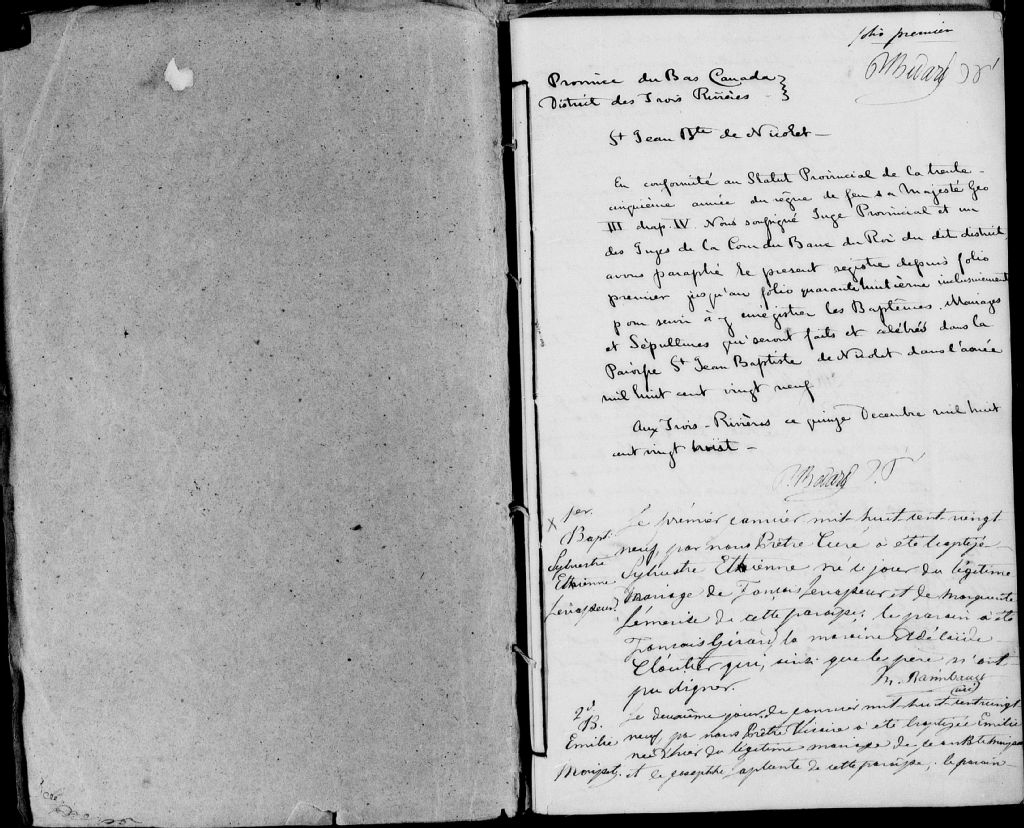 folio premier
P. Bedard
Province du Bas Canada
District des Trois Rivières
St Jean Bte de Nicolet
En conformité au Statut Provincial de la trente
cinquième année du règne de feu sa Majesté Geo
III chap. IV. Nous soussigné Juge Provincial et un
des Juges de la Cour du Banc du Roi du dit district
avons paraphé le present registre depuis folio
premier jusqu'au folio quarante huitième inclusivement
pour servir à y enrégistrer les Baptêmes, Mariages
et Sépultures qui seront faits et célébrés dans la
Paroisse St Jean Baptiste de Nicolet dans l'année
mil huit cent vingt neuf
Aux Trois-Rivières ce quinze Decembre mil huit
cent vingt
P. Bedard
X 1er.
Bapt.
Sylvestre
Ethienne
Le premier janvier mil huit cent vingt
neuf, par nous Prêtre Curé a été baptisé
Sylvestre Ethienne né ce jour du légitime
mariage de François et de Marguerite
Lemerise de cette paroisse; le parain a été
François Girard la maraine Adélaide
Cloutier qui, ainsi que le père n'ont
pu signer.
2d
B.
Emilie
Le deuxième jour de janvier mil huit cent vingt
neuf, par nous Prêtre Vicaire a été baptisée Emilie
née d'hier du légitime mariage de Jean Bte
et de Josephte de cette paroisse; le parain